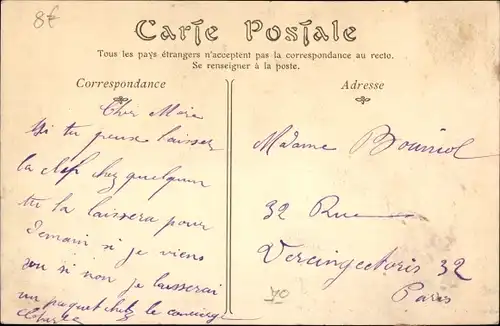 8€
Carte Postale
Tous les pays étrangers n'acceptent pas la correspondance au recto.
Se renseigner à la poste.
Correspondance
Adresse
Cher
si tu peux laisser
la clef chez quelquun
tu la laissera pour
demain si je viens
ou si non je laisserai
un paquet chez le concierge
Madame Bouniol
32 Rue
Vercingectoris 32
Paris